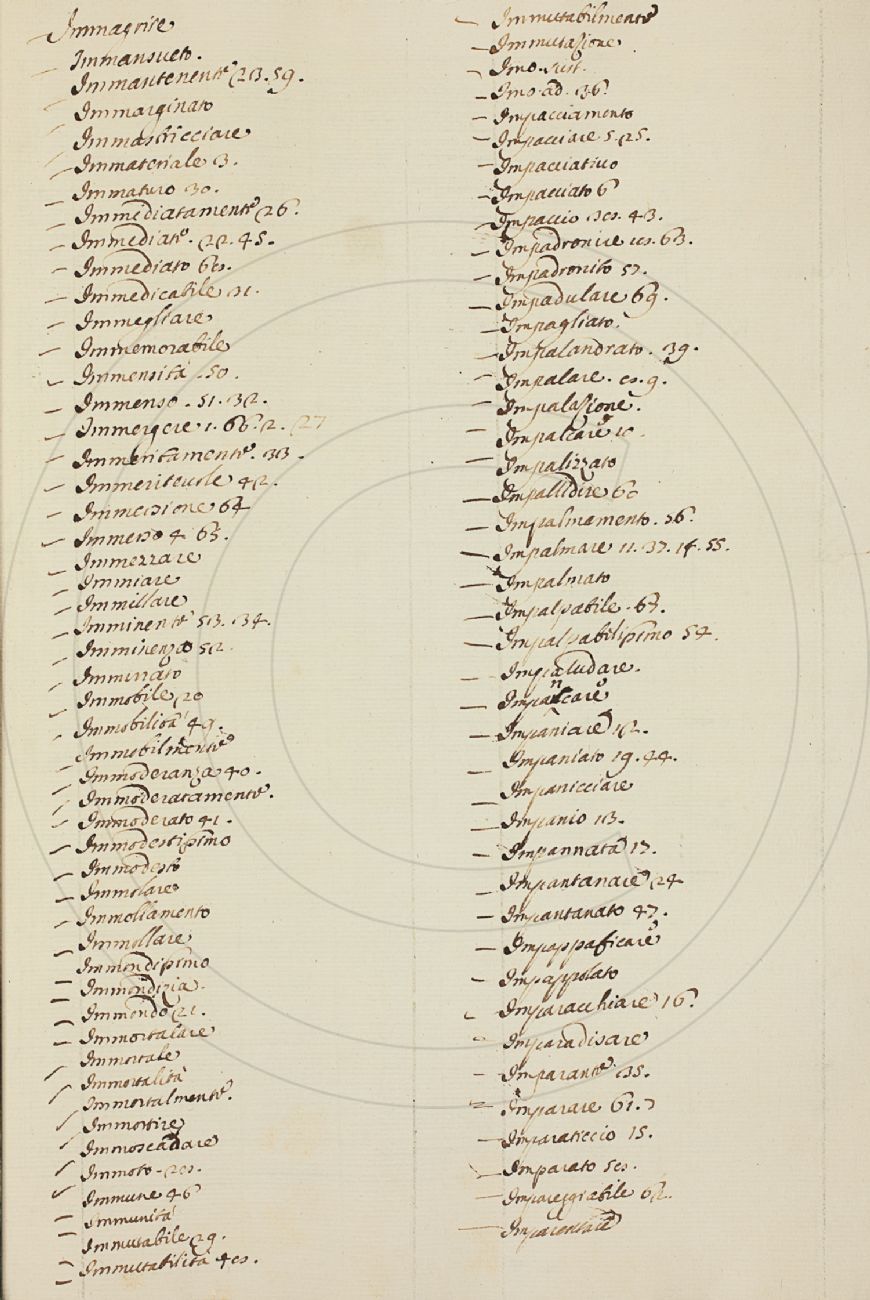 Immagrire
Immansueto.
Immantenente 23. 59.
Immarginato
Immastricciare
Immateriale 3.
Immaturo 30.
Immediatamente 26.
Immediate. 22. 45.
Immediato
Immedicabile 31.
Immegliare
Immemorabile
Immensità. 50.
Immenso. 51. 32.
Immergere 1. 66. 2. 27
Immeritamente. 33.
Immeritevole 42.
Immersione 64
Immerso 4. 65.
Immezzare
Immiare
Immillare
Imminente 53. 34.
Imminenza 52
Immitrato
Immobile 20
Immobilità 49.
Immobilmente
Immoderanza 40.
Immoderatamente.
Immoderato 41.
Immodestissimo
Immodesto
Immolare
Immollamento
Immollare
Immondissimo
Immondizia.
Immondo 21.
Immortalare
Immortale
Immortalità
Immortalmente.
Immortire
Immoscadare
Immoto
Immune 46
Immunità
Immutabile 29.
Immutabilità
Immutabilmente
Immutazione
Imo. sust.
Imo. ad. 36.
Impacciamento
Impacciare 5. 25.
Impacciativo
Impacciato 6
Impaccio 43.
Impadronire 63.
Impadronito 57.
Impadulare 69.
Impagliato.
Impalandrato. 39.
Impalare. 9.
Impalazione.
Impalcare
Impalizzato
Impallidire 60
Impalmamento. 56.
Impalmare 11. 37. 14. 55.
Impalmato
Impalpabile. 67.
Impalpabilissimo 54.
Impaludare.
Impancare
Impaniare 12.
Impaniato 19. 44.
Impanicciare
Impanio 13.
Impannata 17.
Impantanare 24
Impantanato 47.
Impappaficare
Impappolato
Imparacchiare 16.
Imparadisare
Imparante 35.
Imparare 61.
Imparaticcio 15.
Imparato
Impareggiabile 62.
Imparentare